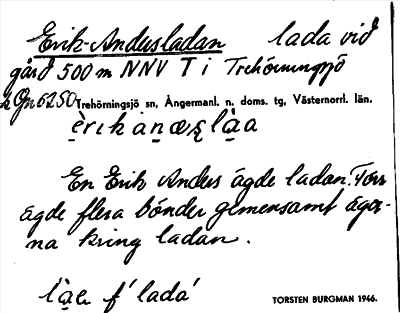 Erik-Andersladan lada vid
gård 500 m NNV T i Trehörningsjö
Gn6250 Trehörningsjö sn, Ångermanl. n. doms. tg, Västernorrl. län.
En Erik Anders ägde ladan. Förr
ägde flera bönder gemensamt ägor-
na kring ladan.
f' lada'
TORSTEN BURGMAN 1946.